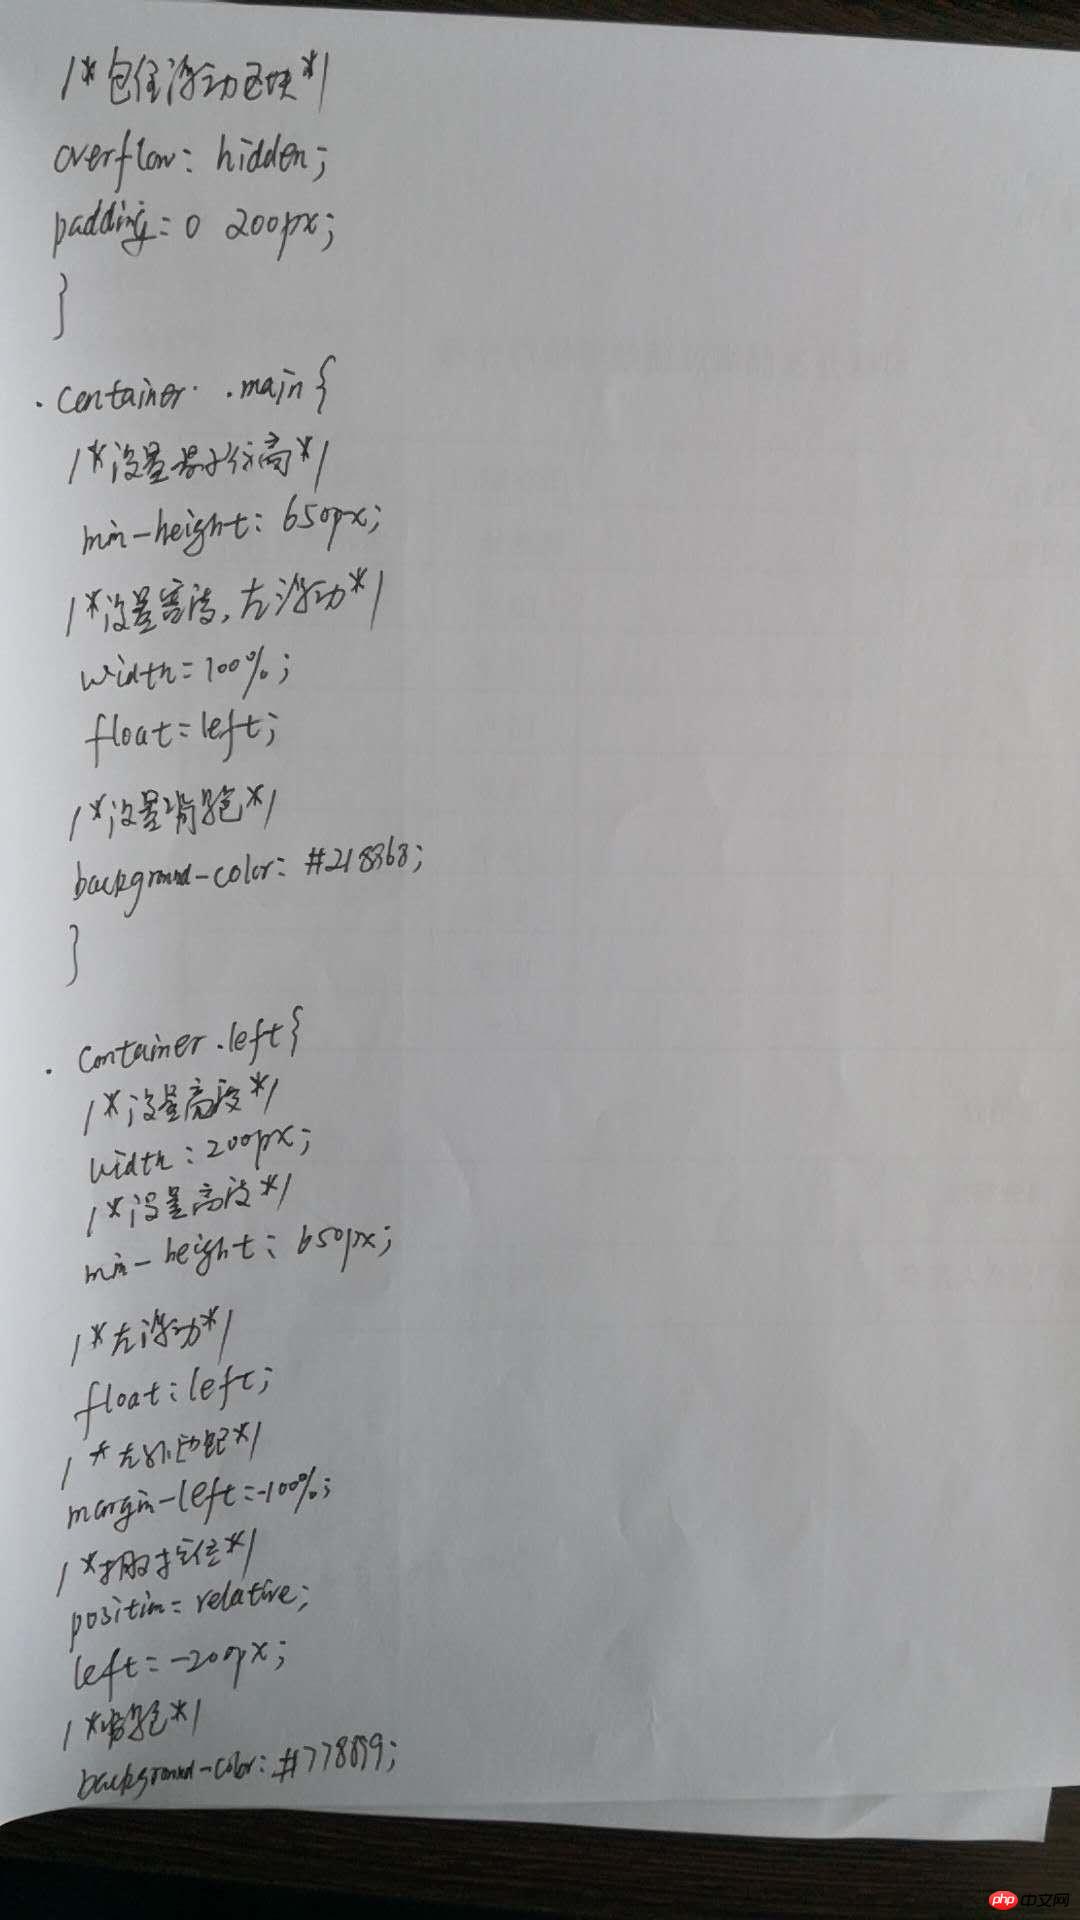 /*包住浮动区块*/
overflow: hidden;
padding: 0 200px;
}
.container .main{
/*设置最小行高*/
min-height: 650px;
/*设置宽度,左浮动*/
width: 100%;
float: left;
/*设置背景色*/
background-color: #218868;
}
.container .left{
/*设置高度*/
width: 200px;
/*设置高度*/
min-height: 650px;
/*左浮动*/
float: left;
/*左外边距*/
margin-left: -100%;
/*相对定位*/
position: relative;
left: -200px;
/*背景色*/
background-color: #778899;
php 中文网